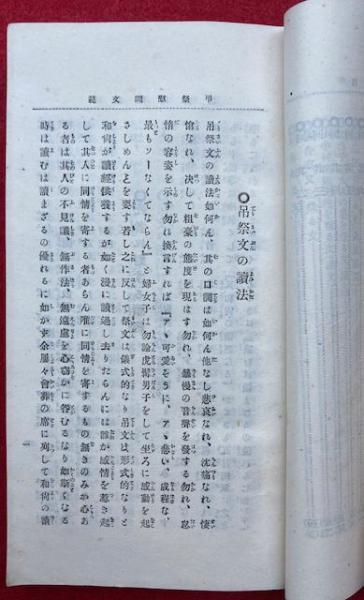 弔祭慰問文範
◎吊祭文の讀法
吊祭文の讀法如何ん、其の口調は如何ん他なし悲哀なれ、沈痛なれ、悽
愴なれ、决して粗豪の態度を現はす勿れ、暴慢の音聲を發する勿れ、怠
惰の容姿を示す勿れ換言すれば『アヽ可愛そうに、アヽ悲い、成程な、
最もソーなくてならん』と婦女子は勿論虎髯男子をして坐ろに感動を起
さしめんとを要す若し之に反して祭文は儀式的なり吊文は形式的なりと
和尚が讀經供養するが如く漫に讀過し去りたらんには誰か感情を惹き起
して其人に同情を寄する者あらん唯に同情を寄するもの無きのみか心あ
る者は其人の不見識、無作法、無遠慮を心竊かに咎むるなり如斯くなる
時は讀むは讀まざるの優れるに如かず余屢々會葬の席に列して和尚の讀
一